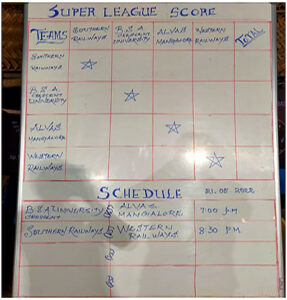 SUPER LEAGUE SCORE
TEAMS SOUTHERN RAILWAYS B S A CRESCENT UNIVERSITY ALVAS MANGALORE WESTERN RAILWAYS TOTAL
SOUTHERN
RAILWAYS
B S A
CRESCENT
UNIVERSITY
ALVAS
MANGALORE
WESTERN
RAILWAYS
SCHEDULE 21.08 2022
B.S.A UNIVERSITY CRESCENT VS ALVAS MANGALORE 7:00 P.M
SOUTHERN RAILWAYS VS WESTERN RAILWAYS 8:30 P.M
VS
VS